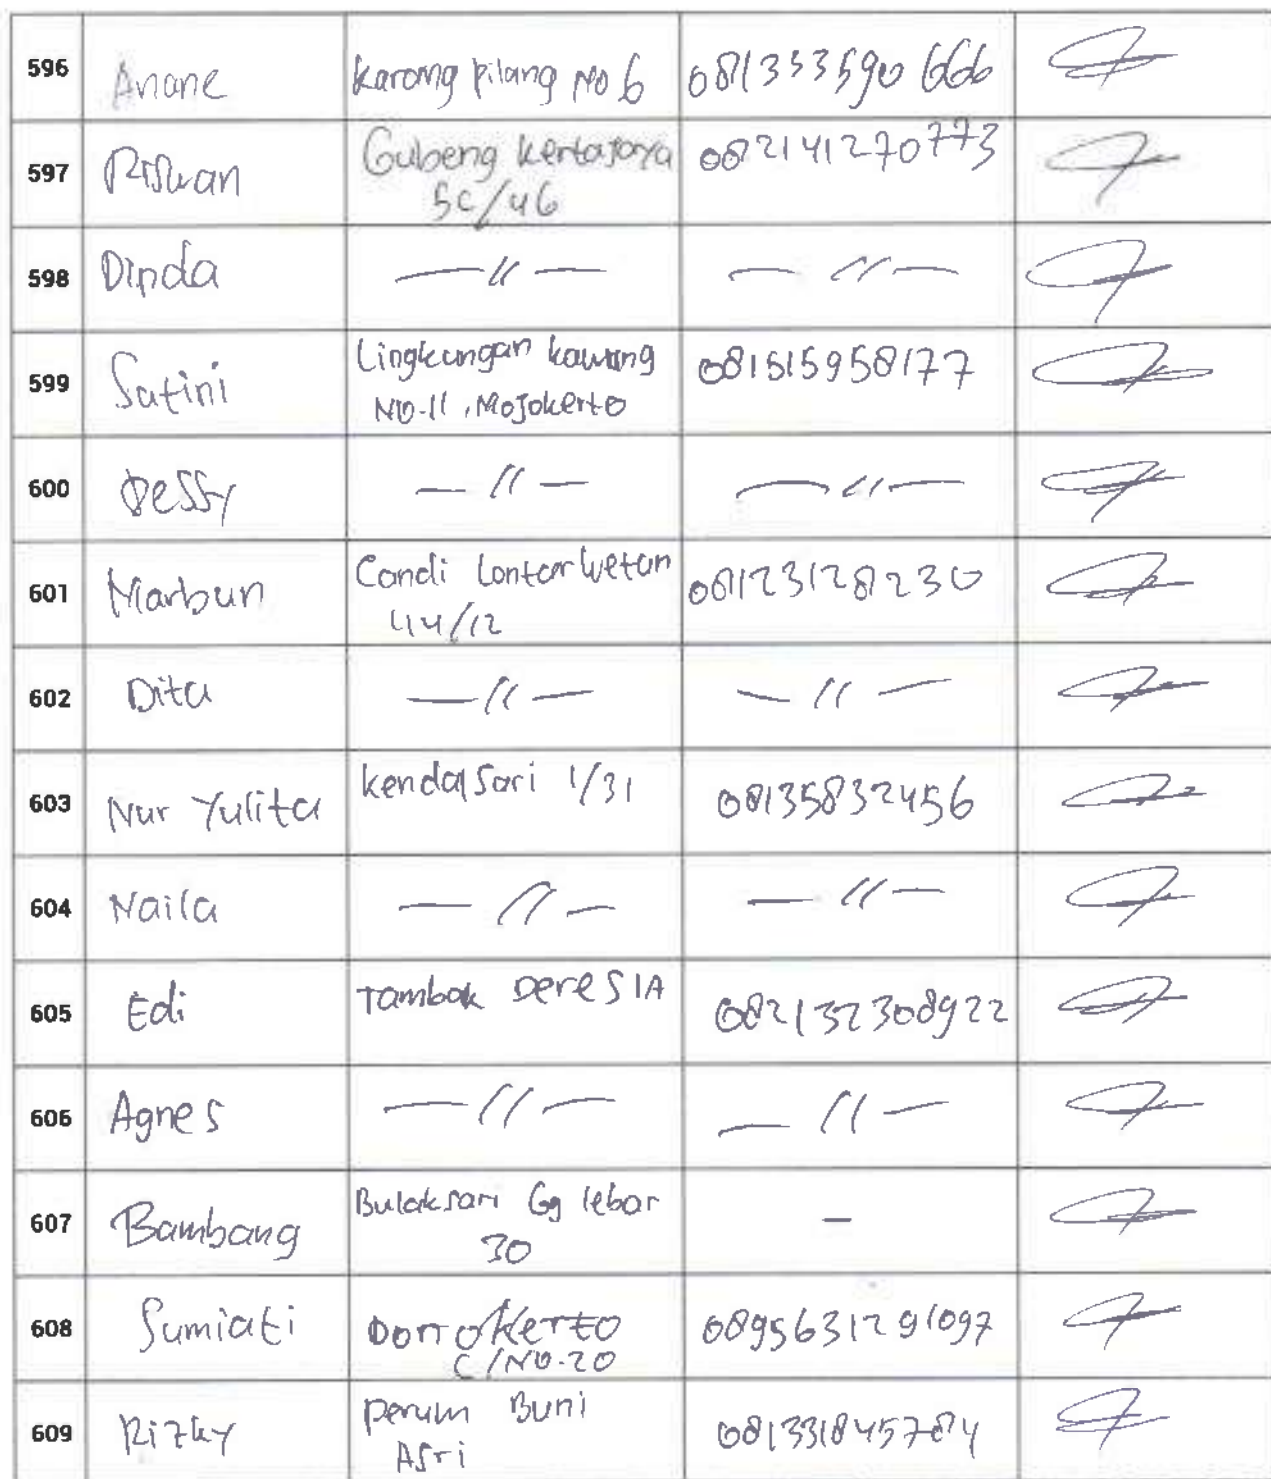 596 Anane Karang pilang No 6 081353590666
597 Riswan Gubeng Kertajaya 082141270773
5C/46
598 Dinda —〃— —〃—
599 Satini Lingkungan kawung 081515958177
NO-11, Mojokerto
600 Dessy —〃— —〃—
601 Marbun Candi Lontar Wetan 08123128230
44/12
602 Dita —〃— —〃—
603 Nur Yulita kendalsari 1/31 08135832456
604 Naila —〃— —〃—
605 Edi Tambak Deres 1A 082132308922
606 Agnes —〃— —〃—
607 Bambang Bulaksari Gg lebar -
30
608 Sumiati Donokerto 0895631291097
C/NO-20
609 Rizky perum Buni 081331845784
Asri